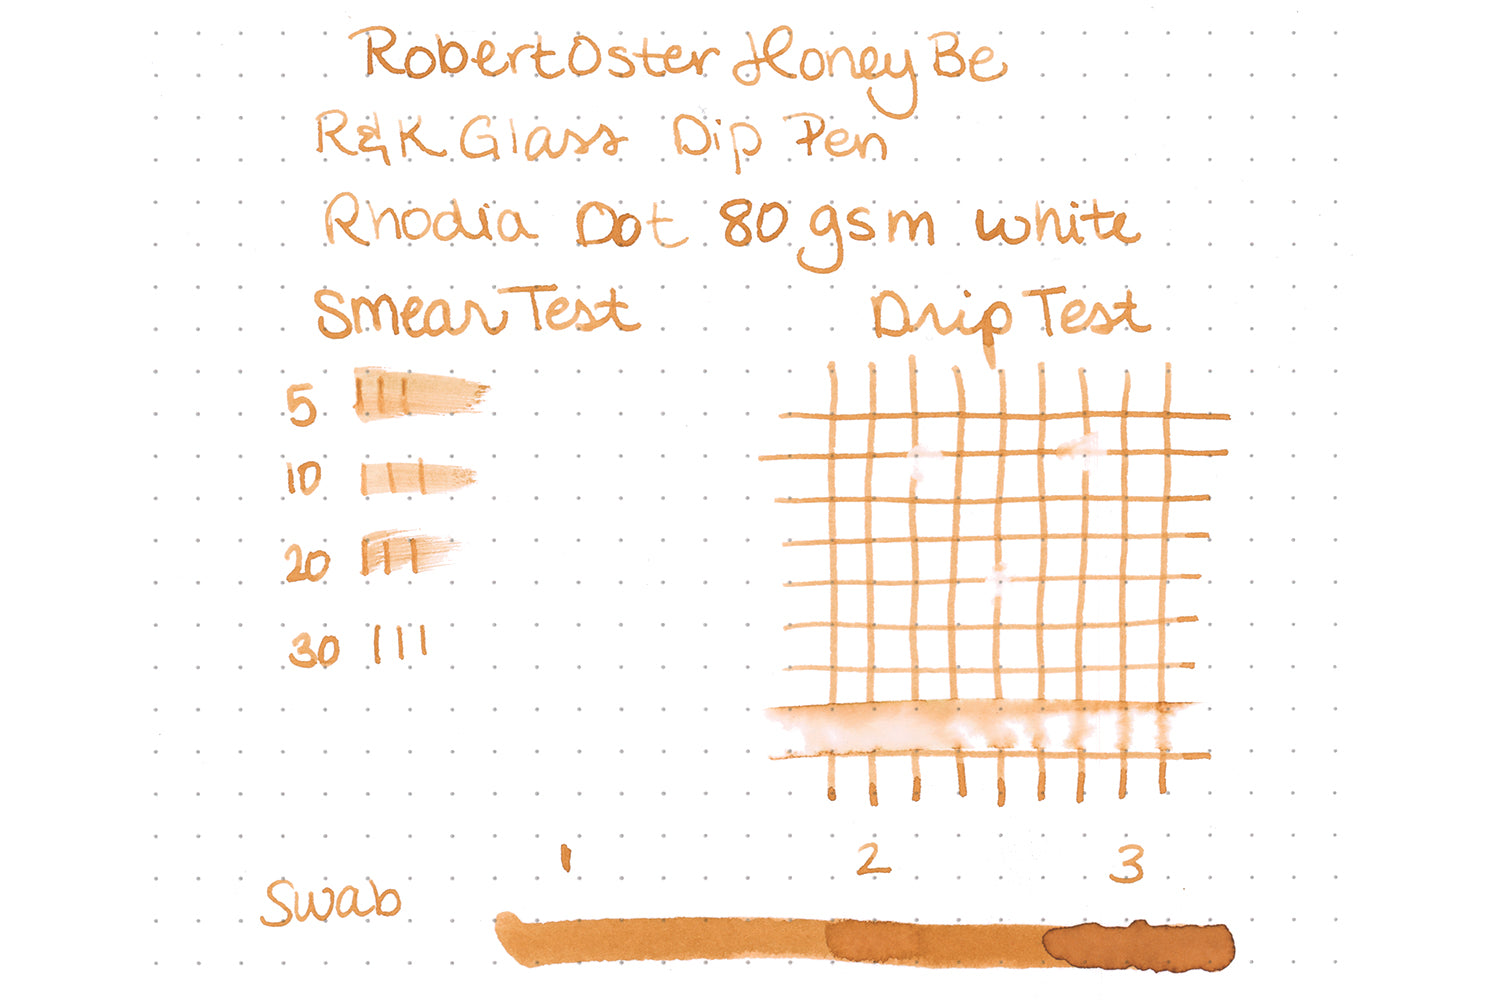 Robert Oster Honey Be
R&K Glass Dip Pen
Rhodia Dot 80 gsm white
Smear Test
Drip Test
5
10
20
30
1 2 3
Swab